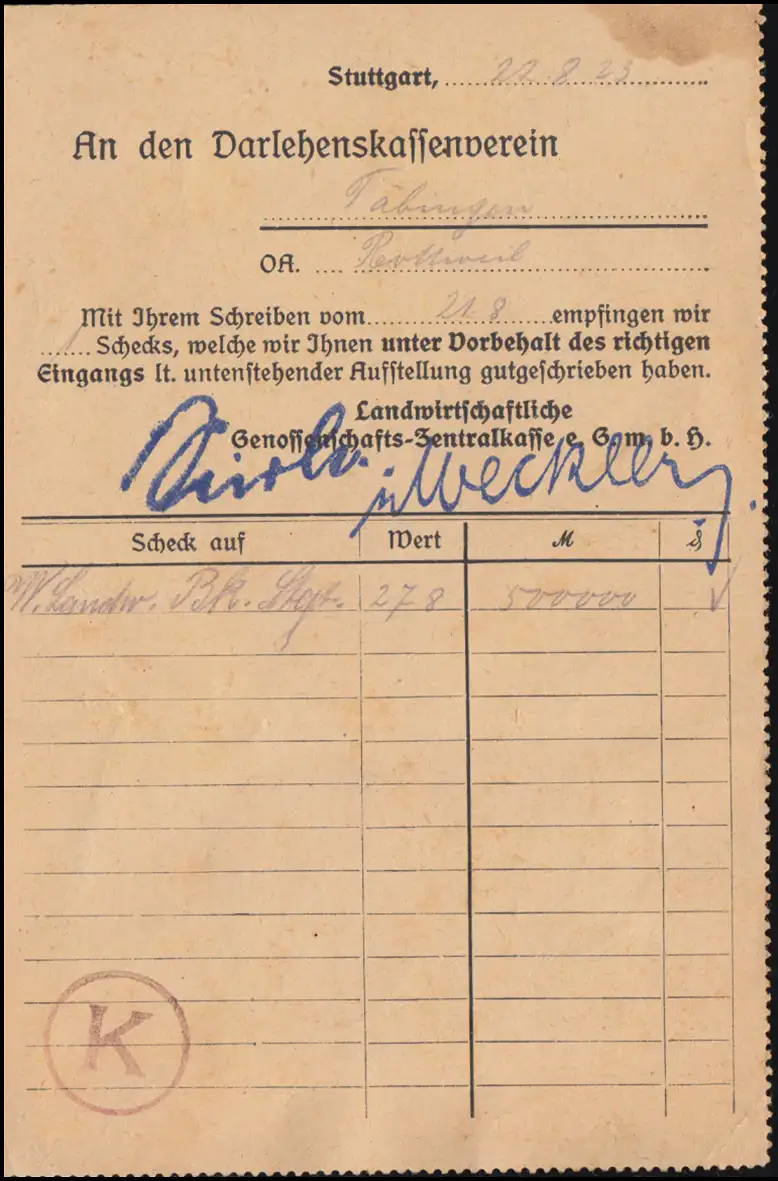 Stuttgart, 22.8.23
An den Darlehenskassenverein
Täbingen
OA. Rottweil
Mit Ihrem Schreiben vom 21.8 empfingen wir
1 Schecks, welche wir Ihnen unter Vorbehalt des richtigen
Eingangs lt. untenstehender Aufstellung gutgeschrieben haben.
Landwirtschaftliche
Genossenschafts-Zentralkasse e. G. m. b. H.
Weckler
Scheck auf Wert M ₰
W. Landw. Bk. Stgt. 27 8 500000
K